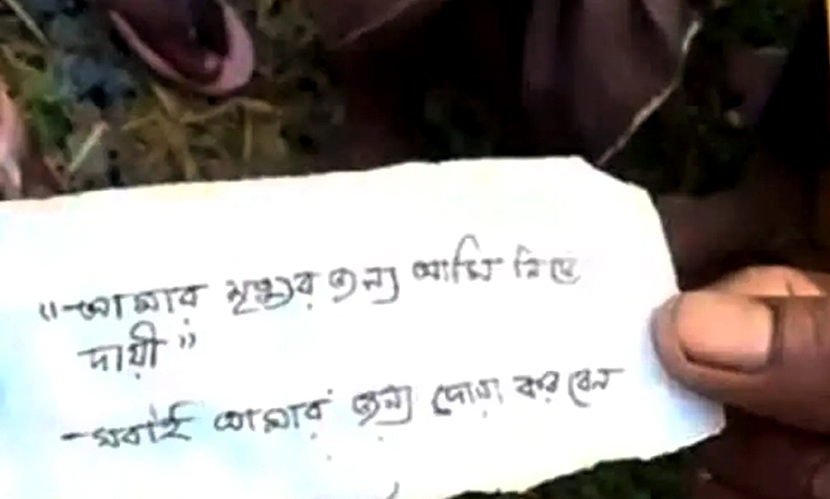 "আমার মৃত্যুর জন্য আমি নিজে
দায়ী"
-সবাই আমার জন্য দোয়া করবেন